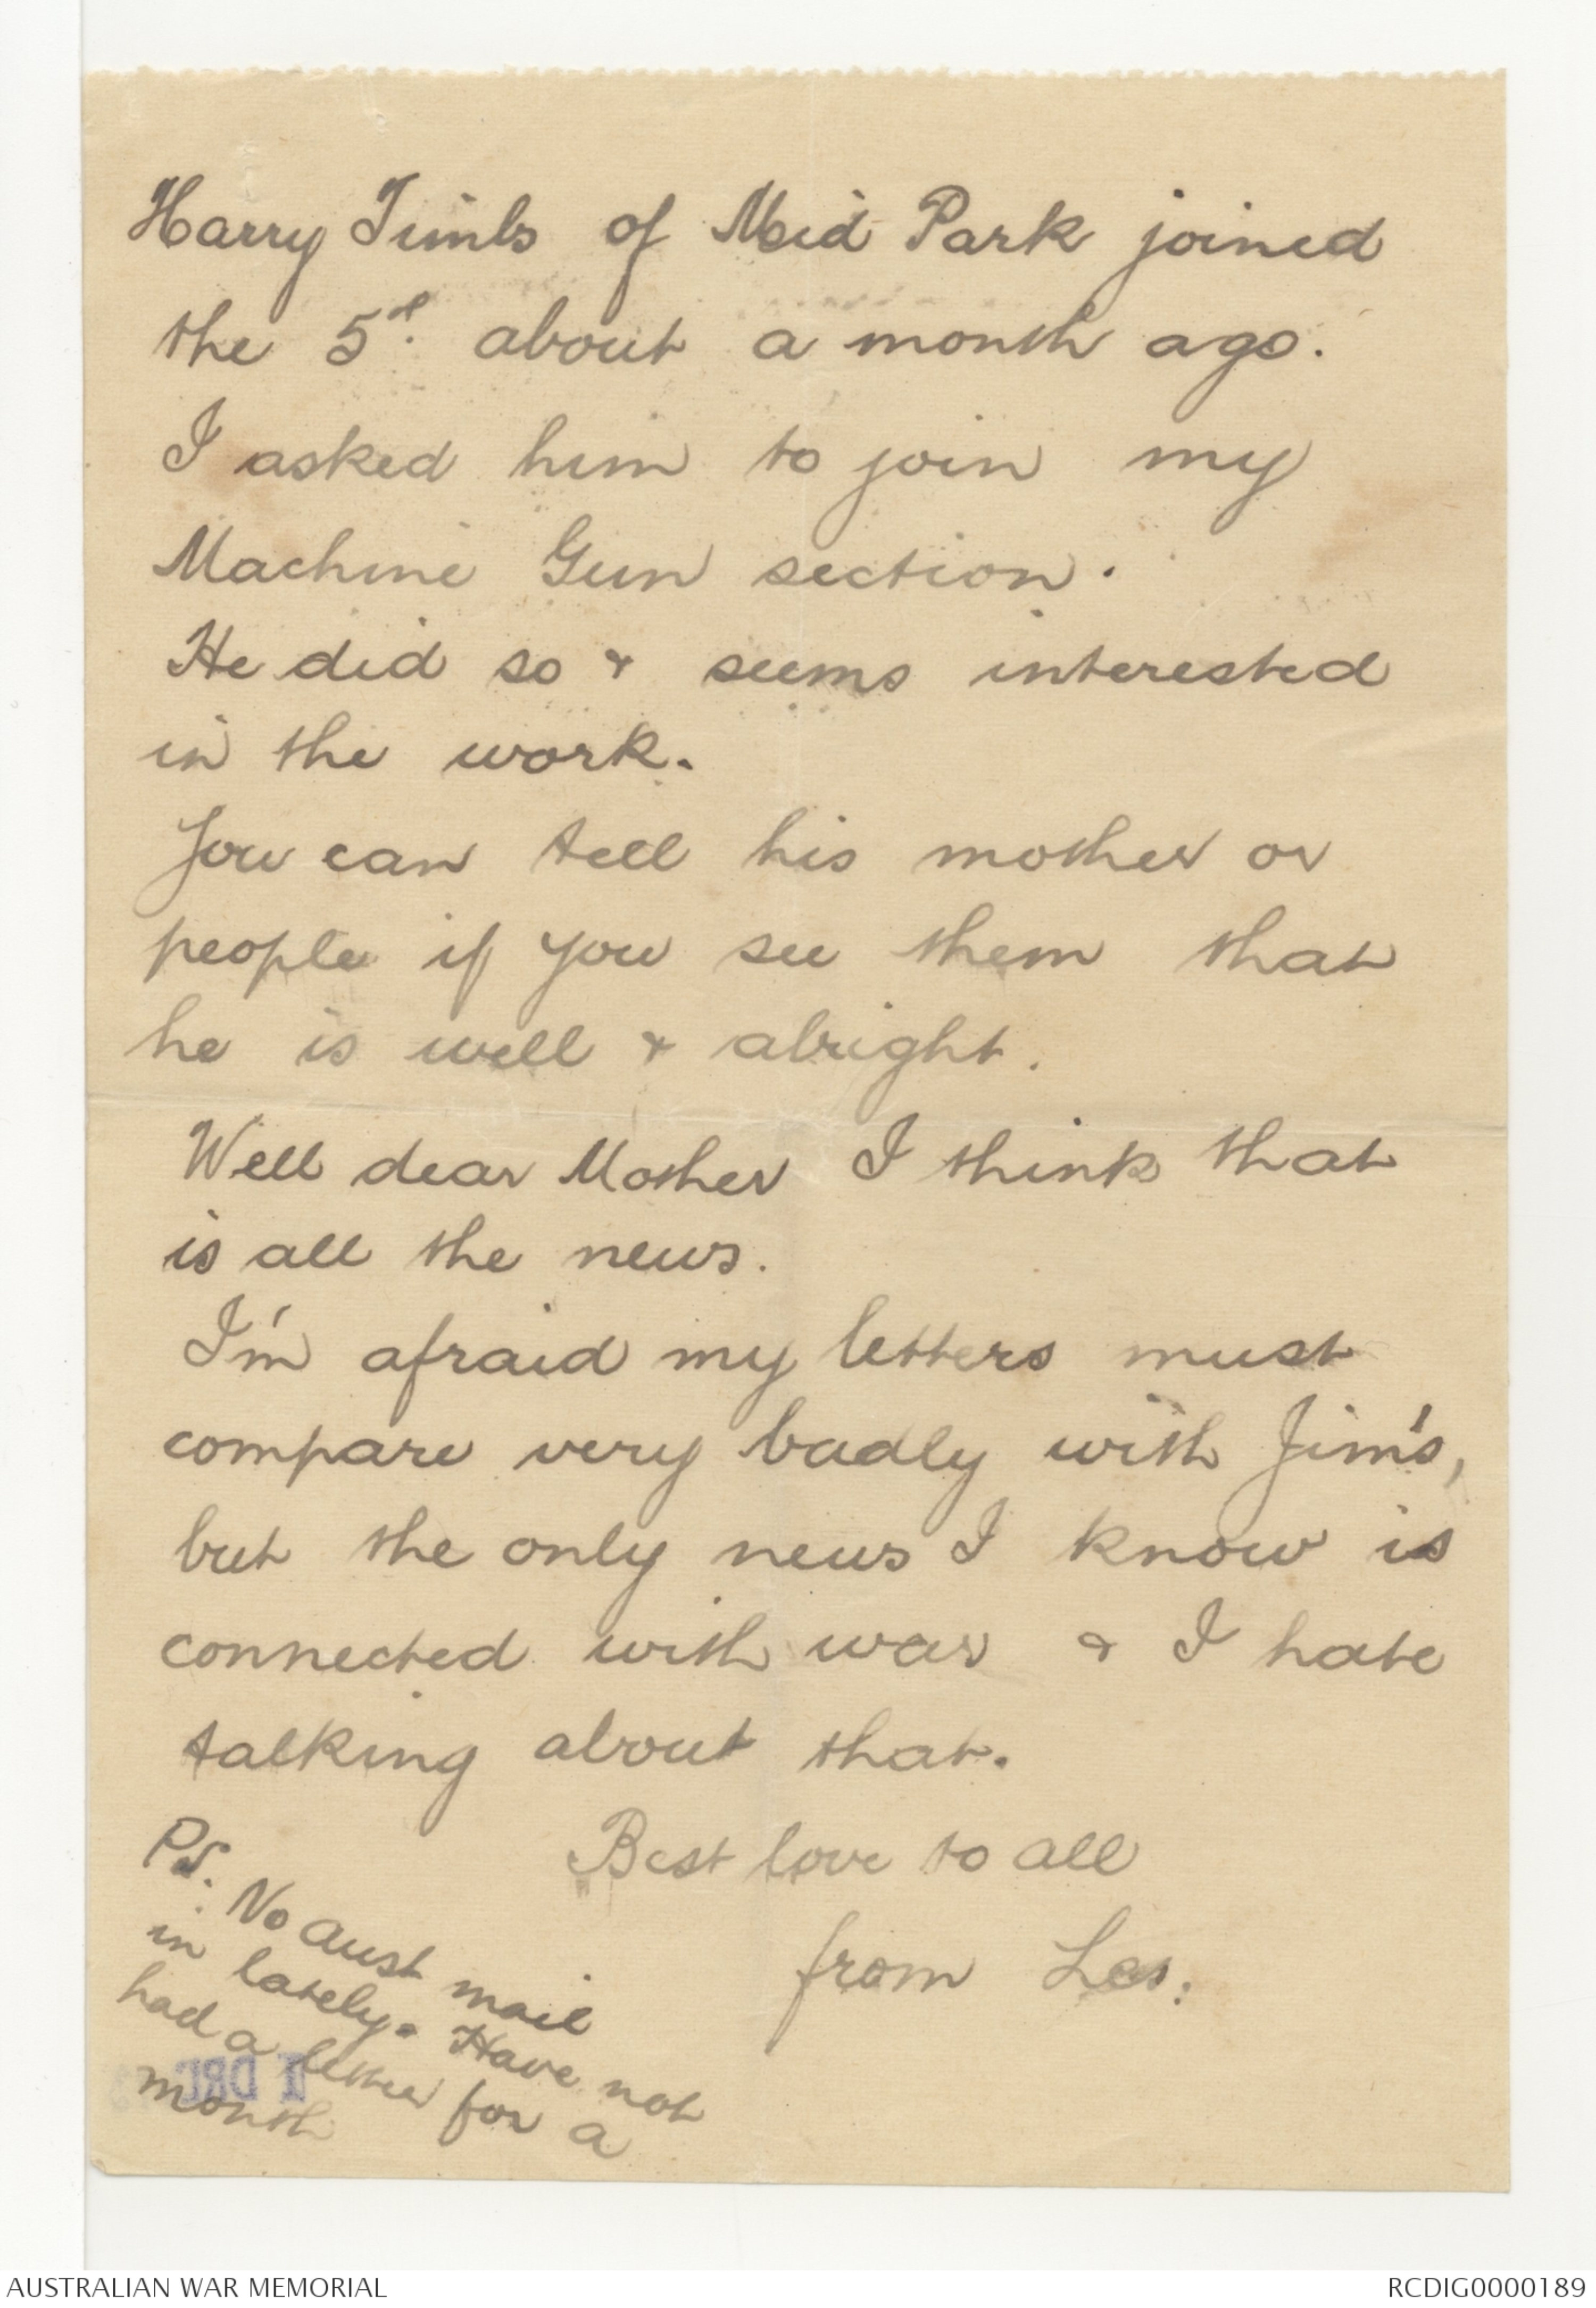 Harry Timbs of Mid Park joined
the 5th. about a month ago.
I asked him to join my
Machine Gun section.
He did so & seems interested
in the work.
You can tell his mother or
people if you see them that
he is well & alright.
Well dear Mother I think that
is all the news.
I'm afraid my letters must
compare very badly with Jim's,
but the only news I know is
connected with war & I hate
talking about that.
Best love to all
from Les.
PS. No Aust mail
in lately. Have not
had a letter for a
month
1 DRL
AUSTRALIAN WAR MEMORIAL
RCDIG0000189